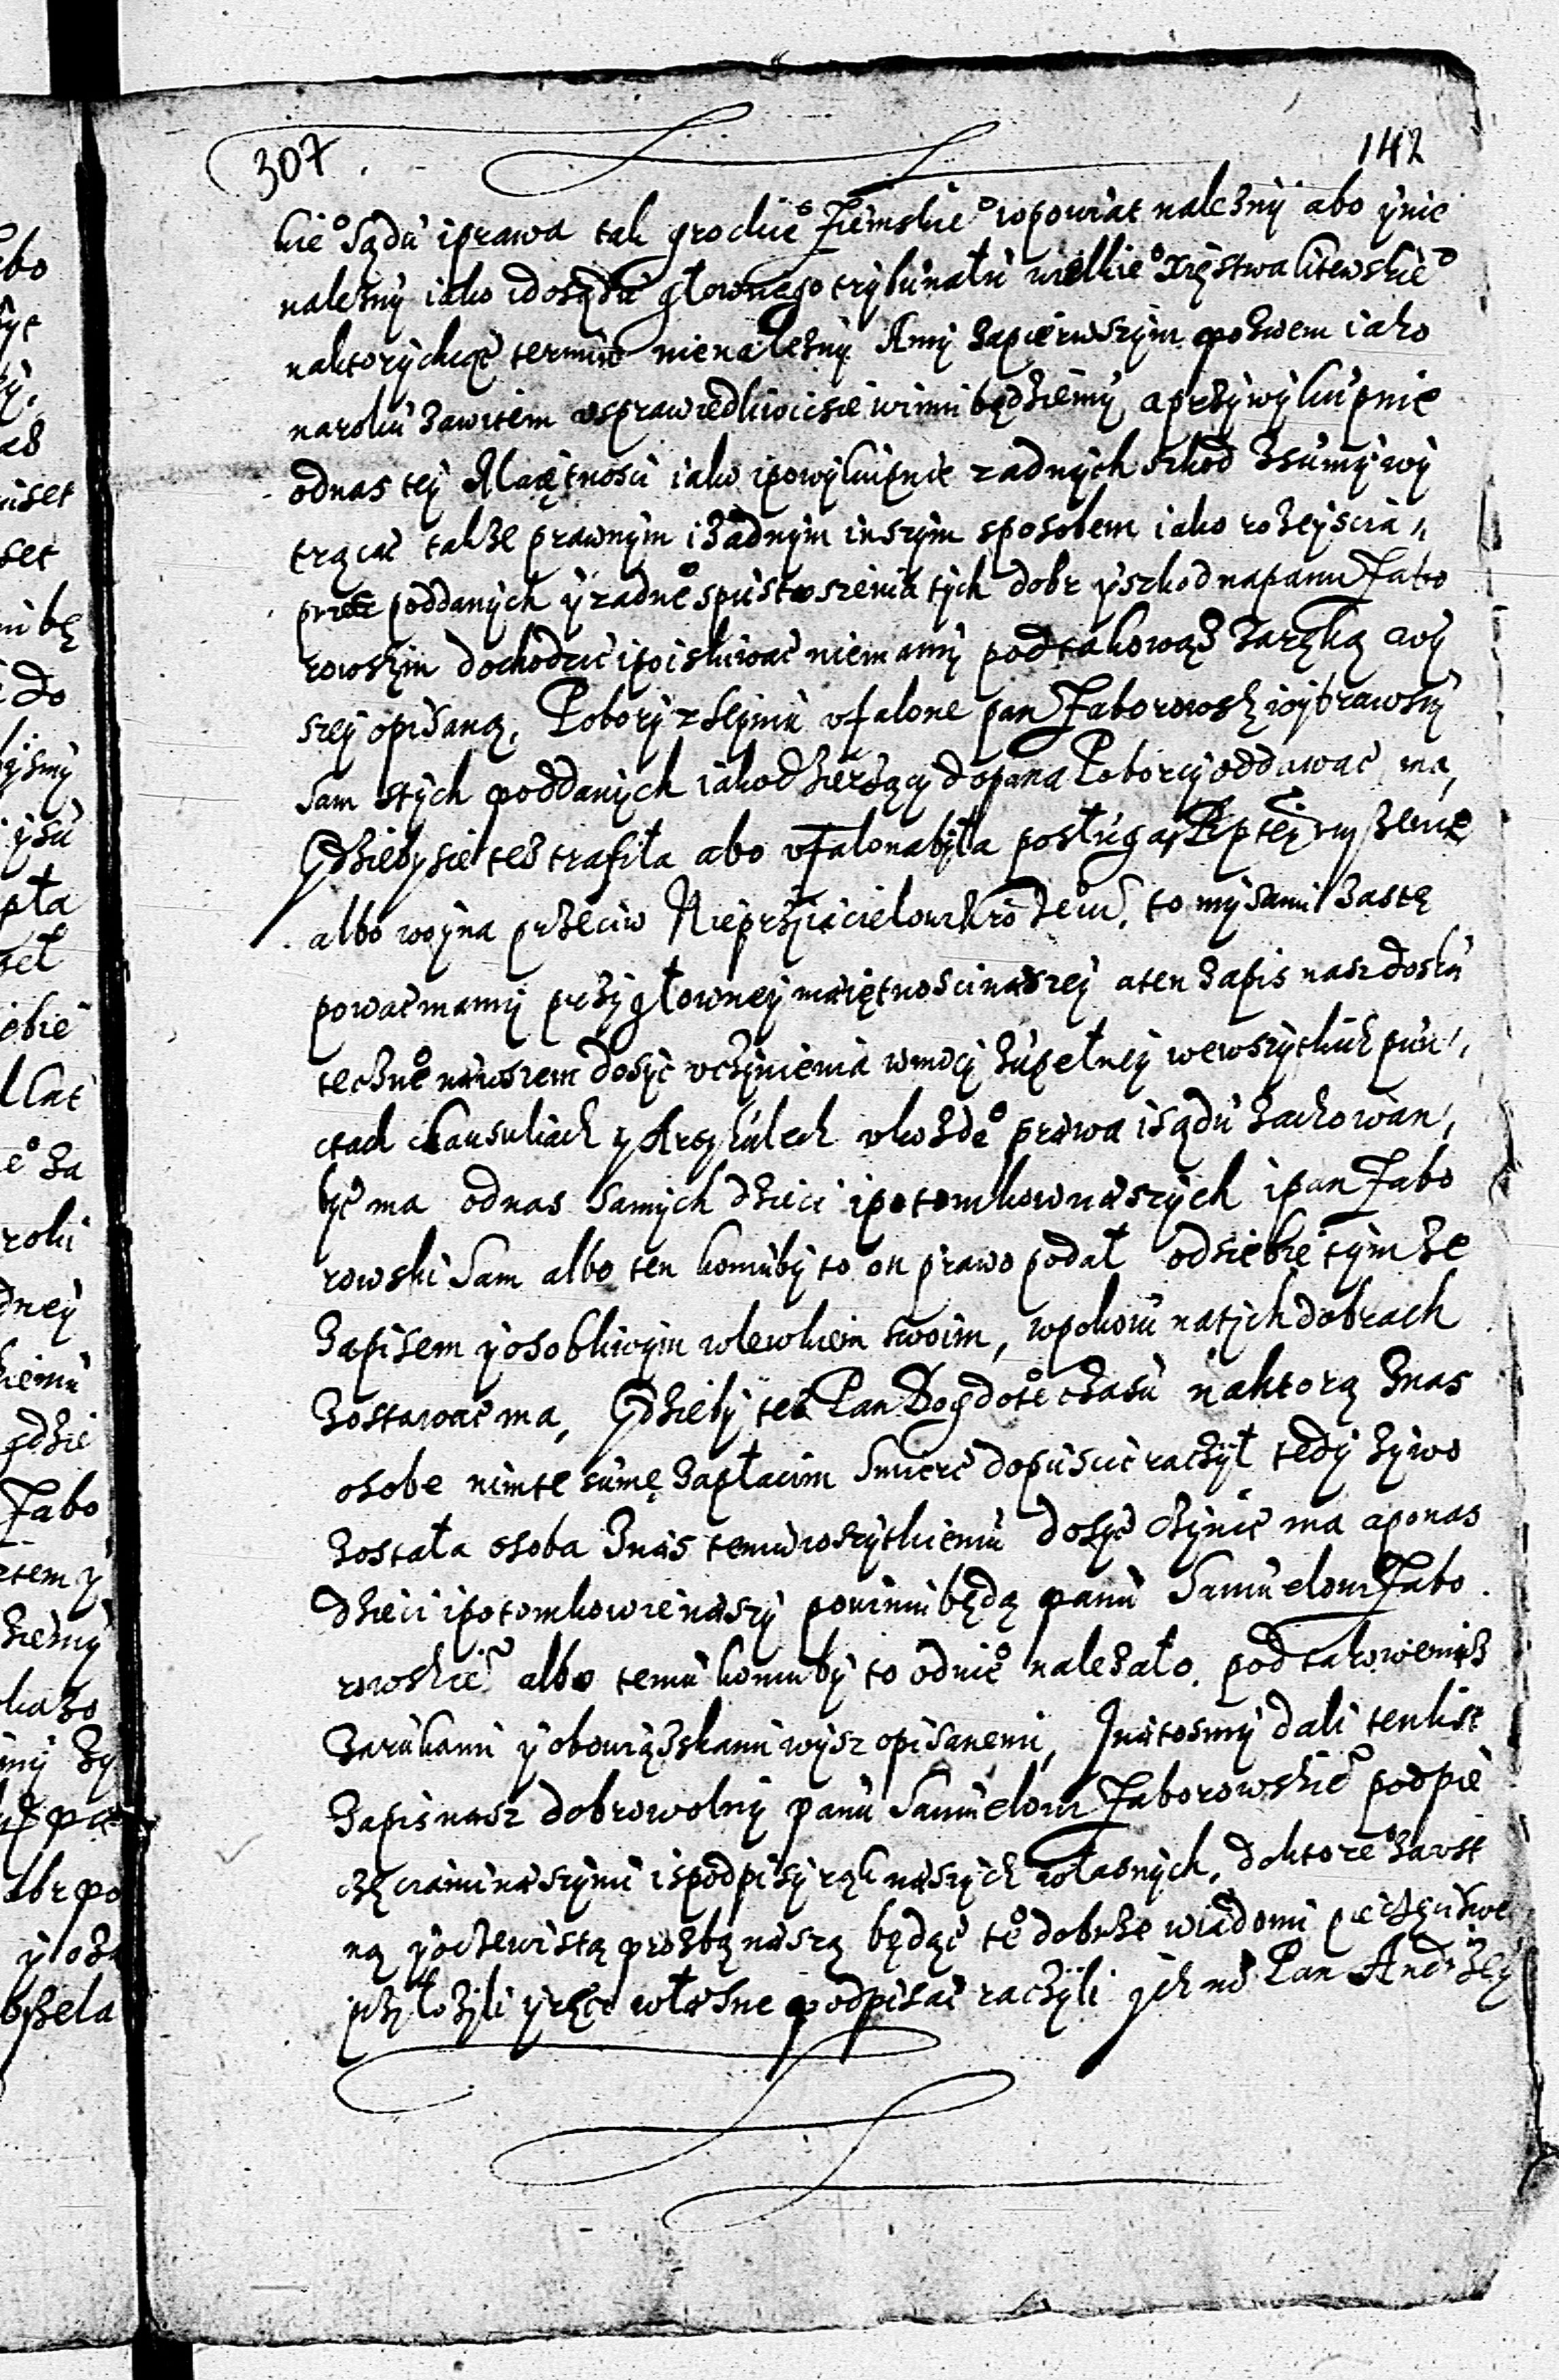 307. 142
kie° Sądu iprawa tak grodzkie° Ziemskie° wpowiat należnÿ abo ÿnie
należnÿ iako idosądu głownego trybunałú wielkie° Xięstwa litewskie°
naktorÿchkąc termin nienależnÿ Amÿ zapierwszÿm pozwem iako
narokú zawitem vsprawiedliwicsie winni będziemÿ aprzÿ wÿkupnie
odnas teÿ Maiętnosci iako ipowÿkupnie zadnÿch szkod zsúmÿ wÿ
trącać także prawnÿm iżadnÿm inszÿm sposobem iako rozeÿscia,
przez poddanÿch ÿ zadne° spústoszenia tÿch dobr ÿszkod napanu Zabo
rowskim dochodzić ipoiskiwać niemamÿ podtakowąż zaręką wÿ
szeÿ opisaną, Poborÿ zseÿmú vfalone pan Zaborowski wÿbrawszÿ
Sam stÿch poddanÿch iako dzierżącÿ dopana Poborcÿ oddawać ma,
Gdziebÿsie też trafiła abo vfalona bÿła posługa Rpteÿ ruszenie
albo woÿna przeciw Nieprzÿiacielowi krô Jeim. to mÿ sami zastę
powaćmamÿ przÿ głowneÿ maiętnosci naszeÿ aten zapis nasz doskú
teczne° nawszem dosÿc vczÿnienia wmocÿ zupełneÿ wewszÿtkich pún,
ctach clausuliach ÿ Artÿkúlech vkożde° prawa isądú zachowan,
bÿć ma odnas samÿch dzieci ipotomkow naszÿch ipan Zabo
rowski Sam albo ten komúbÿ to on prawo podał odsiebie tÿm że
zapisem ÿosobliwÿm wlewkiem swoim, wpokoiú natÿch dobrach
zostawać ma, Gdziebÿ też Pan Bog dote° czasú naktorą znas
osobe nimte súmę zapłacim Smierć dopúscić raczÿł tedÿ żÿwo
została osoba znas temú wszÿtkiemú dosÿć czÿnić ma aponas
dzieci ipotomkowie naszÿ powinni będą panú Samúelowi Zabo
rowskie° albo temú komubÿ to odnie° należało. pod takowemiż
zarúkami ÿobowiązskami wÿsz opisanemi, Jnatosmÿ dali tenlist
Zapis nasz dobrowolnÿ panú Samúelowi Zaborowskie° podpie
częciami naszÿmi ispodpisÿ rąk naszÿch własnÿch, doktore° zavst
ną ÿoczewistą prozbą naszą będąc te° dobrze wiadomi pieczęci swe
przÿłożÿli ÿręce własne podpisać raczÿli ich mć Pan Andrzeÿ